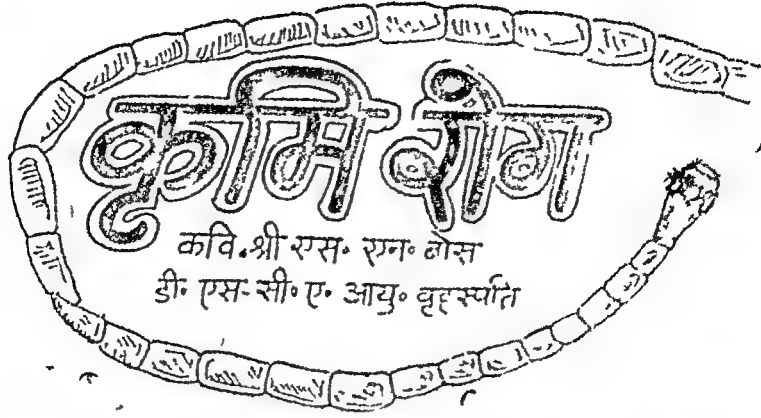 कृमि रोग
कवि. श्री एस. एन. बोस
डी. एस-सी. ए. आयु. वृहस्पति